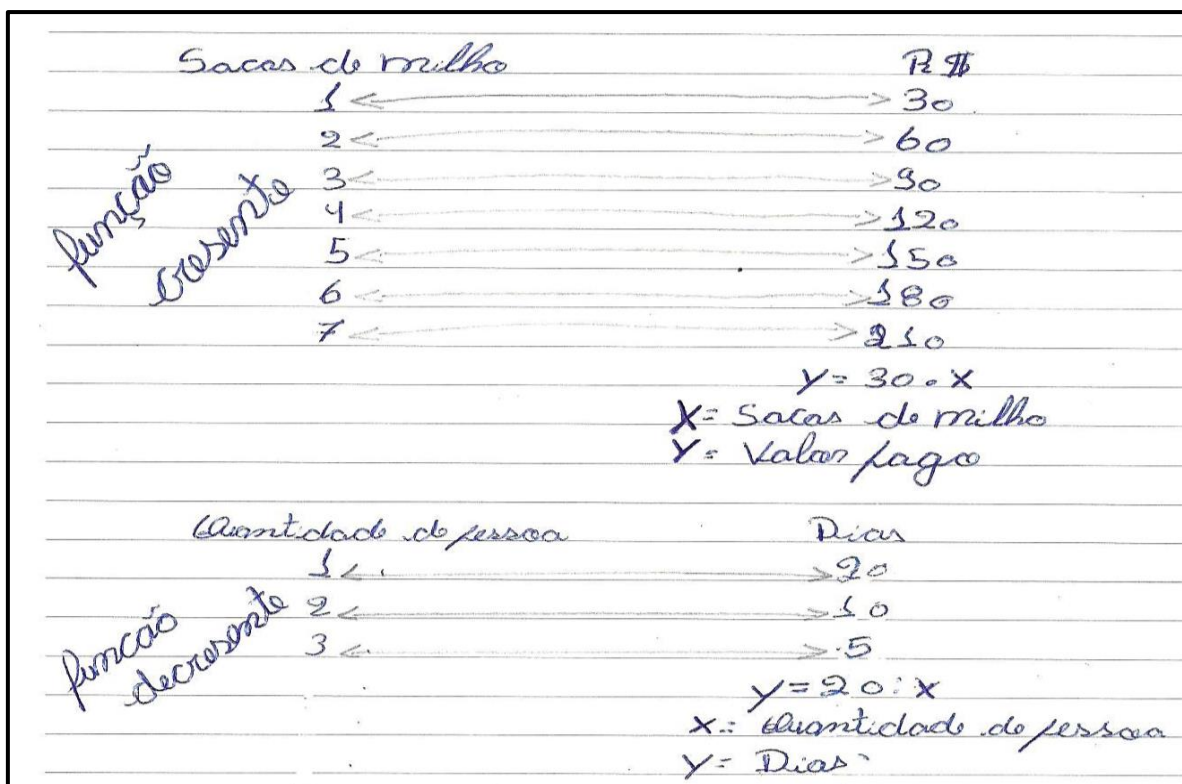 Sacas de milho R$
1 30
2 60
3 90
4 120
5 150
6 180
7 210
função
cresente
Y = 30 . X
X = Sacas de milho
Y = Valor pago
Quantidade de pessoa Dias
1 20
2 10
3 5
funcão
decresente
y = 20 : x
x = Quantidade de pessoa
y = Dias